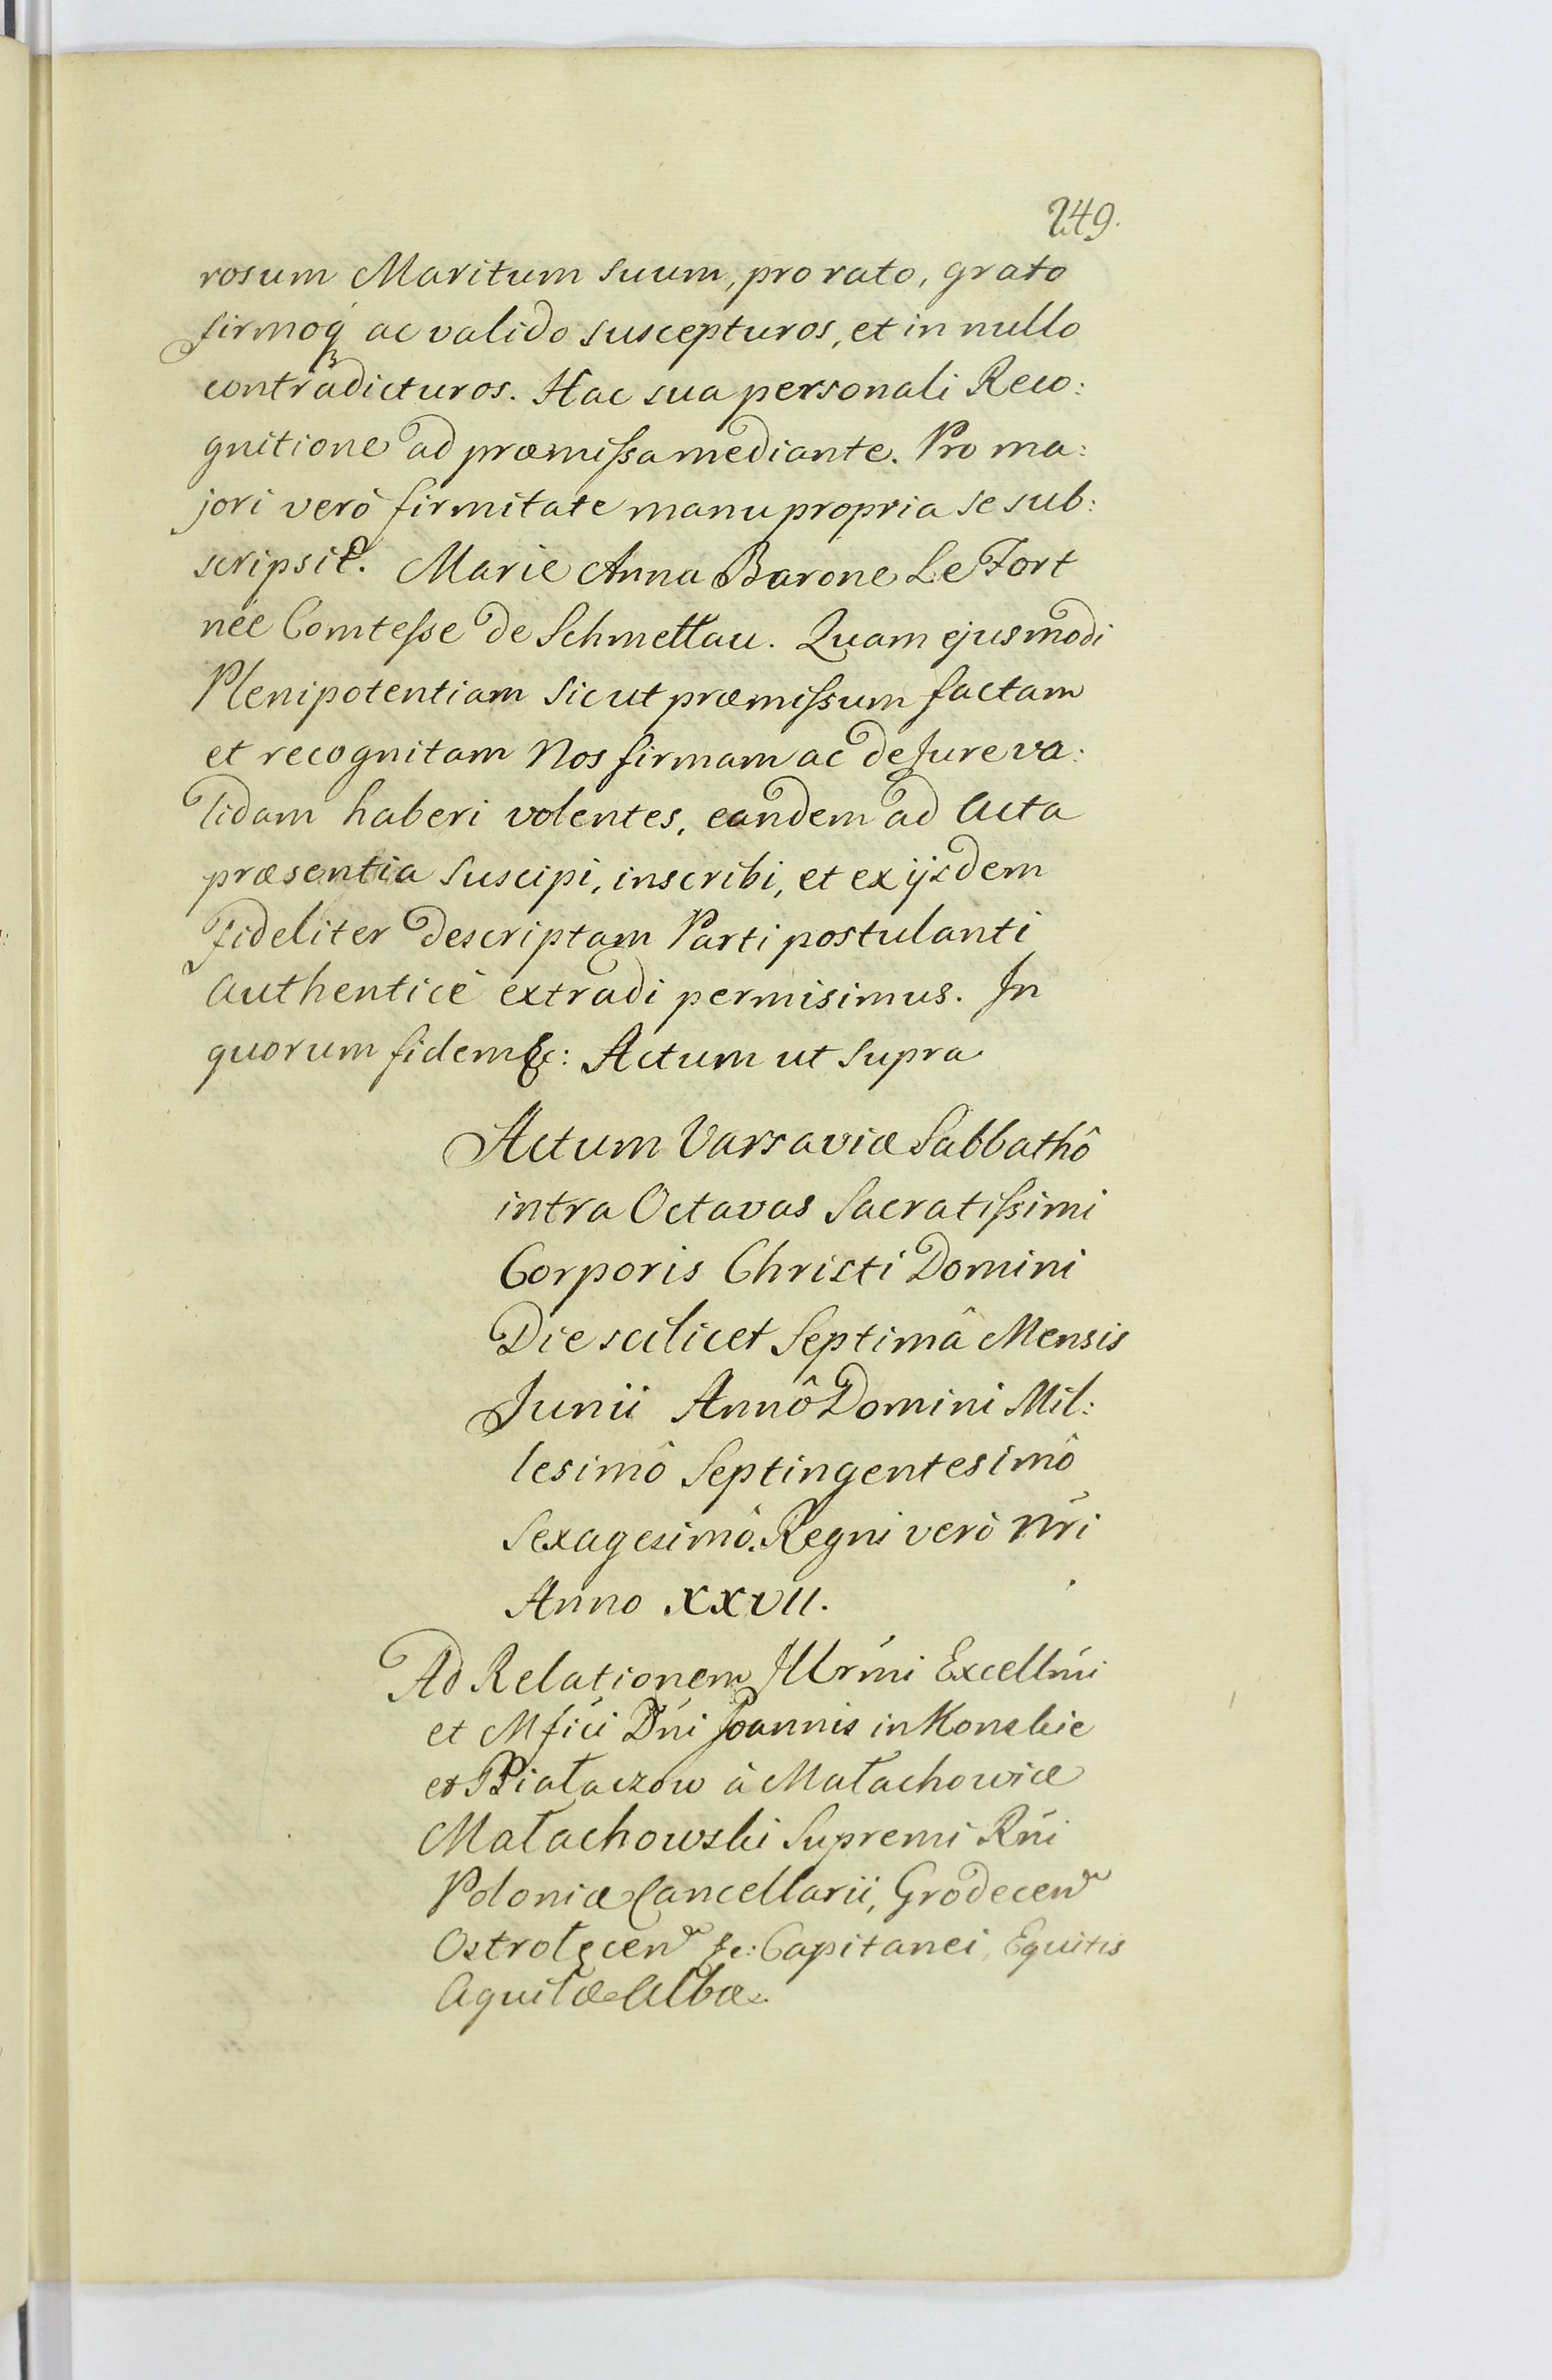 249.
rosum Maritum suum, pro rato, grato
firmoq́ ac valido suscepturos, et in nullo
contradicturos. Hac sua personali Reco:
gnitione ad præmissa mediante. Pro ma:
jori verò firmitate manu propria se sub:
scripsit. Marie Anna Barone Le Fort
née Comtesse de Schmettau. Quam ejusmodi
Plenipotentiam sicut præmissum factam
et recognitam Nos firmam ac de Jure va:
lidam haberi volentes, eandem ad Acta
præsentia suscipi, inscribi, et ex ijsdem
fideliter descriptam Parti postulanti
authenticè extradi permisimus. In
quorum fidem &c: Actum ut supra
Actum Varsaviæ Sabbathô
intra Octavas Sacratissimi
Corporis Christi Domini
Die scilicet Septimâ Mensis
Junii Annô Domini Mil:
lesimô Septingentesimô
Sexagesimô. Regni verò Nri
Anno XXVII.
Ad Relationem Illrmi Excellmi
et Mfici Dni Joannis in Konskie
et Białaczow à Małachowice
Małachowski Supremi Rni
Poloniæ Cancellarii, Grodecen
Ostrołęcen &c: Capitanei, Equitis
Aquilæ Albæ.